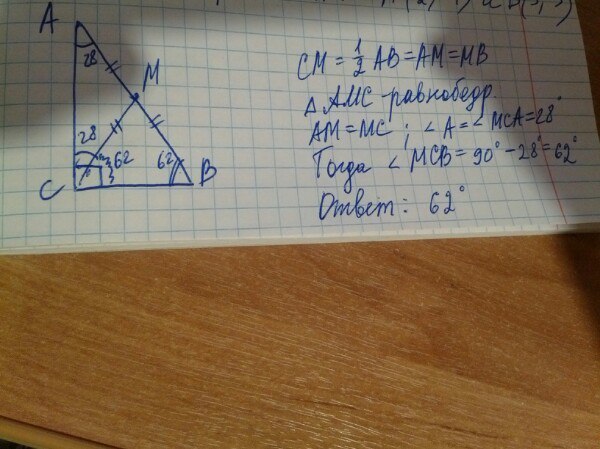 A
28
M
28
62
62
C
B
CM = 1/2 AB = AM = MB
△ AMC - равнобедр.
AM = MC ; ∠ A = ∠ MCA = 28°
Тогда ∠ MCB = 90° - 28° = 62°
Ответ: 62°